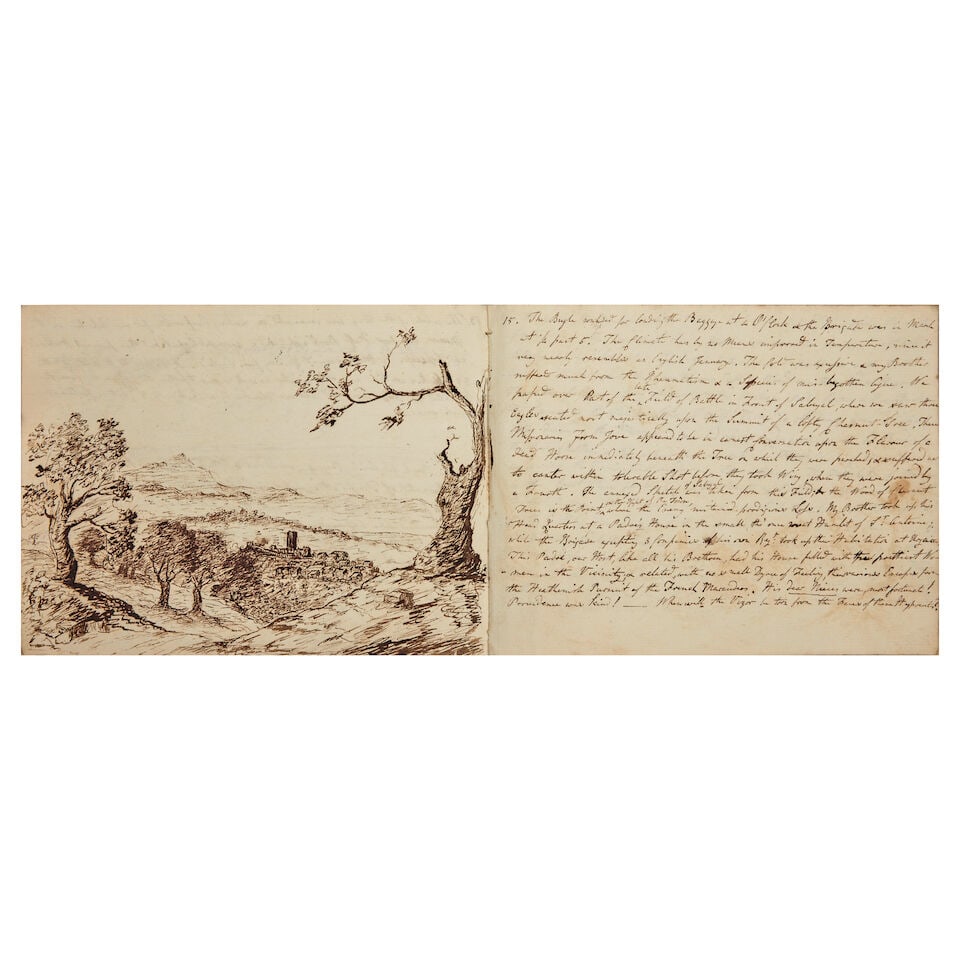 15. The Bugle sounded for loading the Baggage at 4 O'Clock & the Brigade was in March
at ½ past 5. The Climate has by no Means improved in Temperature, since it
very nearly resembles an English January. The Cold was excessive & my Brother
suffered much from the Rheumatism & a Species of misbegotten Ague. We
passed over Part of the late Field of Battle in Front of Sabugal, where we saw three
Eagles seated most majestically upon the Summit of a lofty Chesnut-Tree. These
Messengers from Jove appeared to be in earnest Conversation upon the Flavour of a
dead Horse immediately beneath the Tree on which they were perched, & suffered us
to canter within tolerable Shot before they took Wing, when they were joined by
a Fourth. The annexed Sketch of Sabugal was taken from this Field & the Wood of Chesnut
Trees is the Point on this Side of the Town, where the Enemy sustained prodigious Loss. My Brother took up his
Head Quarters at a Padre's House in the small &
while the Brigade excepting 3 Companies of his own Regt. took up the Habitation at
This Padre, our Host, like all his Brethren, had his House filled with the prettiest Wo-
men in the Vicinity, & related, with no small Degree of Feeling, their various Escapes from
the Heathenish Pursuit of the French Marauders. His dear Nieces were most fortunate!
Providence was kind! — When will the Vizor be torn from the Faces of these Hypocrites!